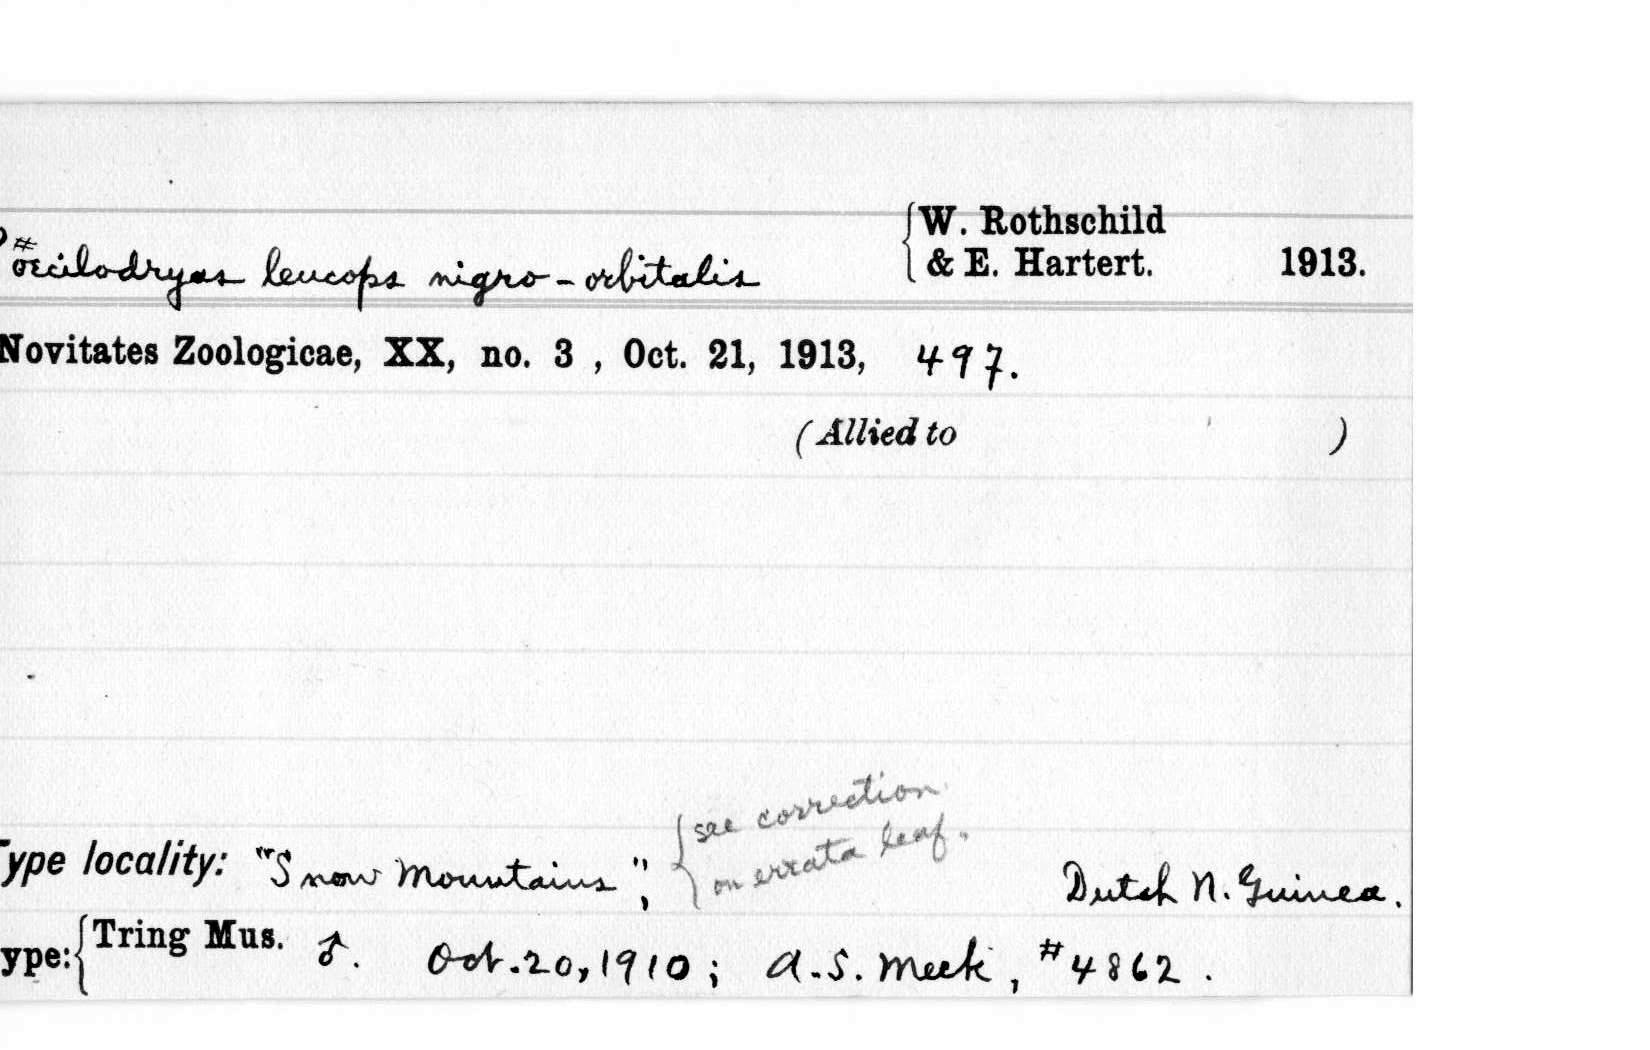 W. Rothschild
Poecilodryas leucops nigro-orbitalis & E. Hartert. 1913.
Novitates Zoologicae, XX, no. 3 , Oct. 21, 1913, 497.
(Allied to )
see correction
on errata leaf.
Type locality: "Snow Mountains"; Dutch N. Guinea.
ype: Tring Mus. ♂. Oct. 20, 1910; A. S. Meek, #4862.